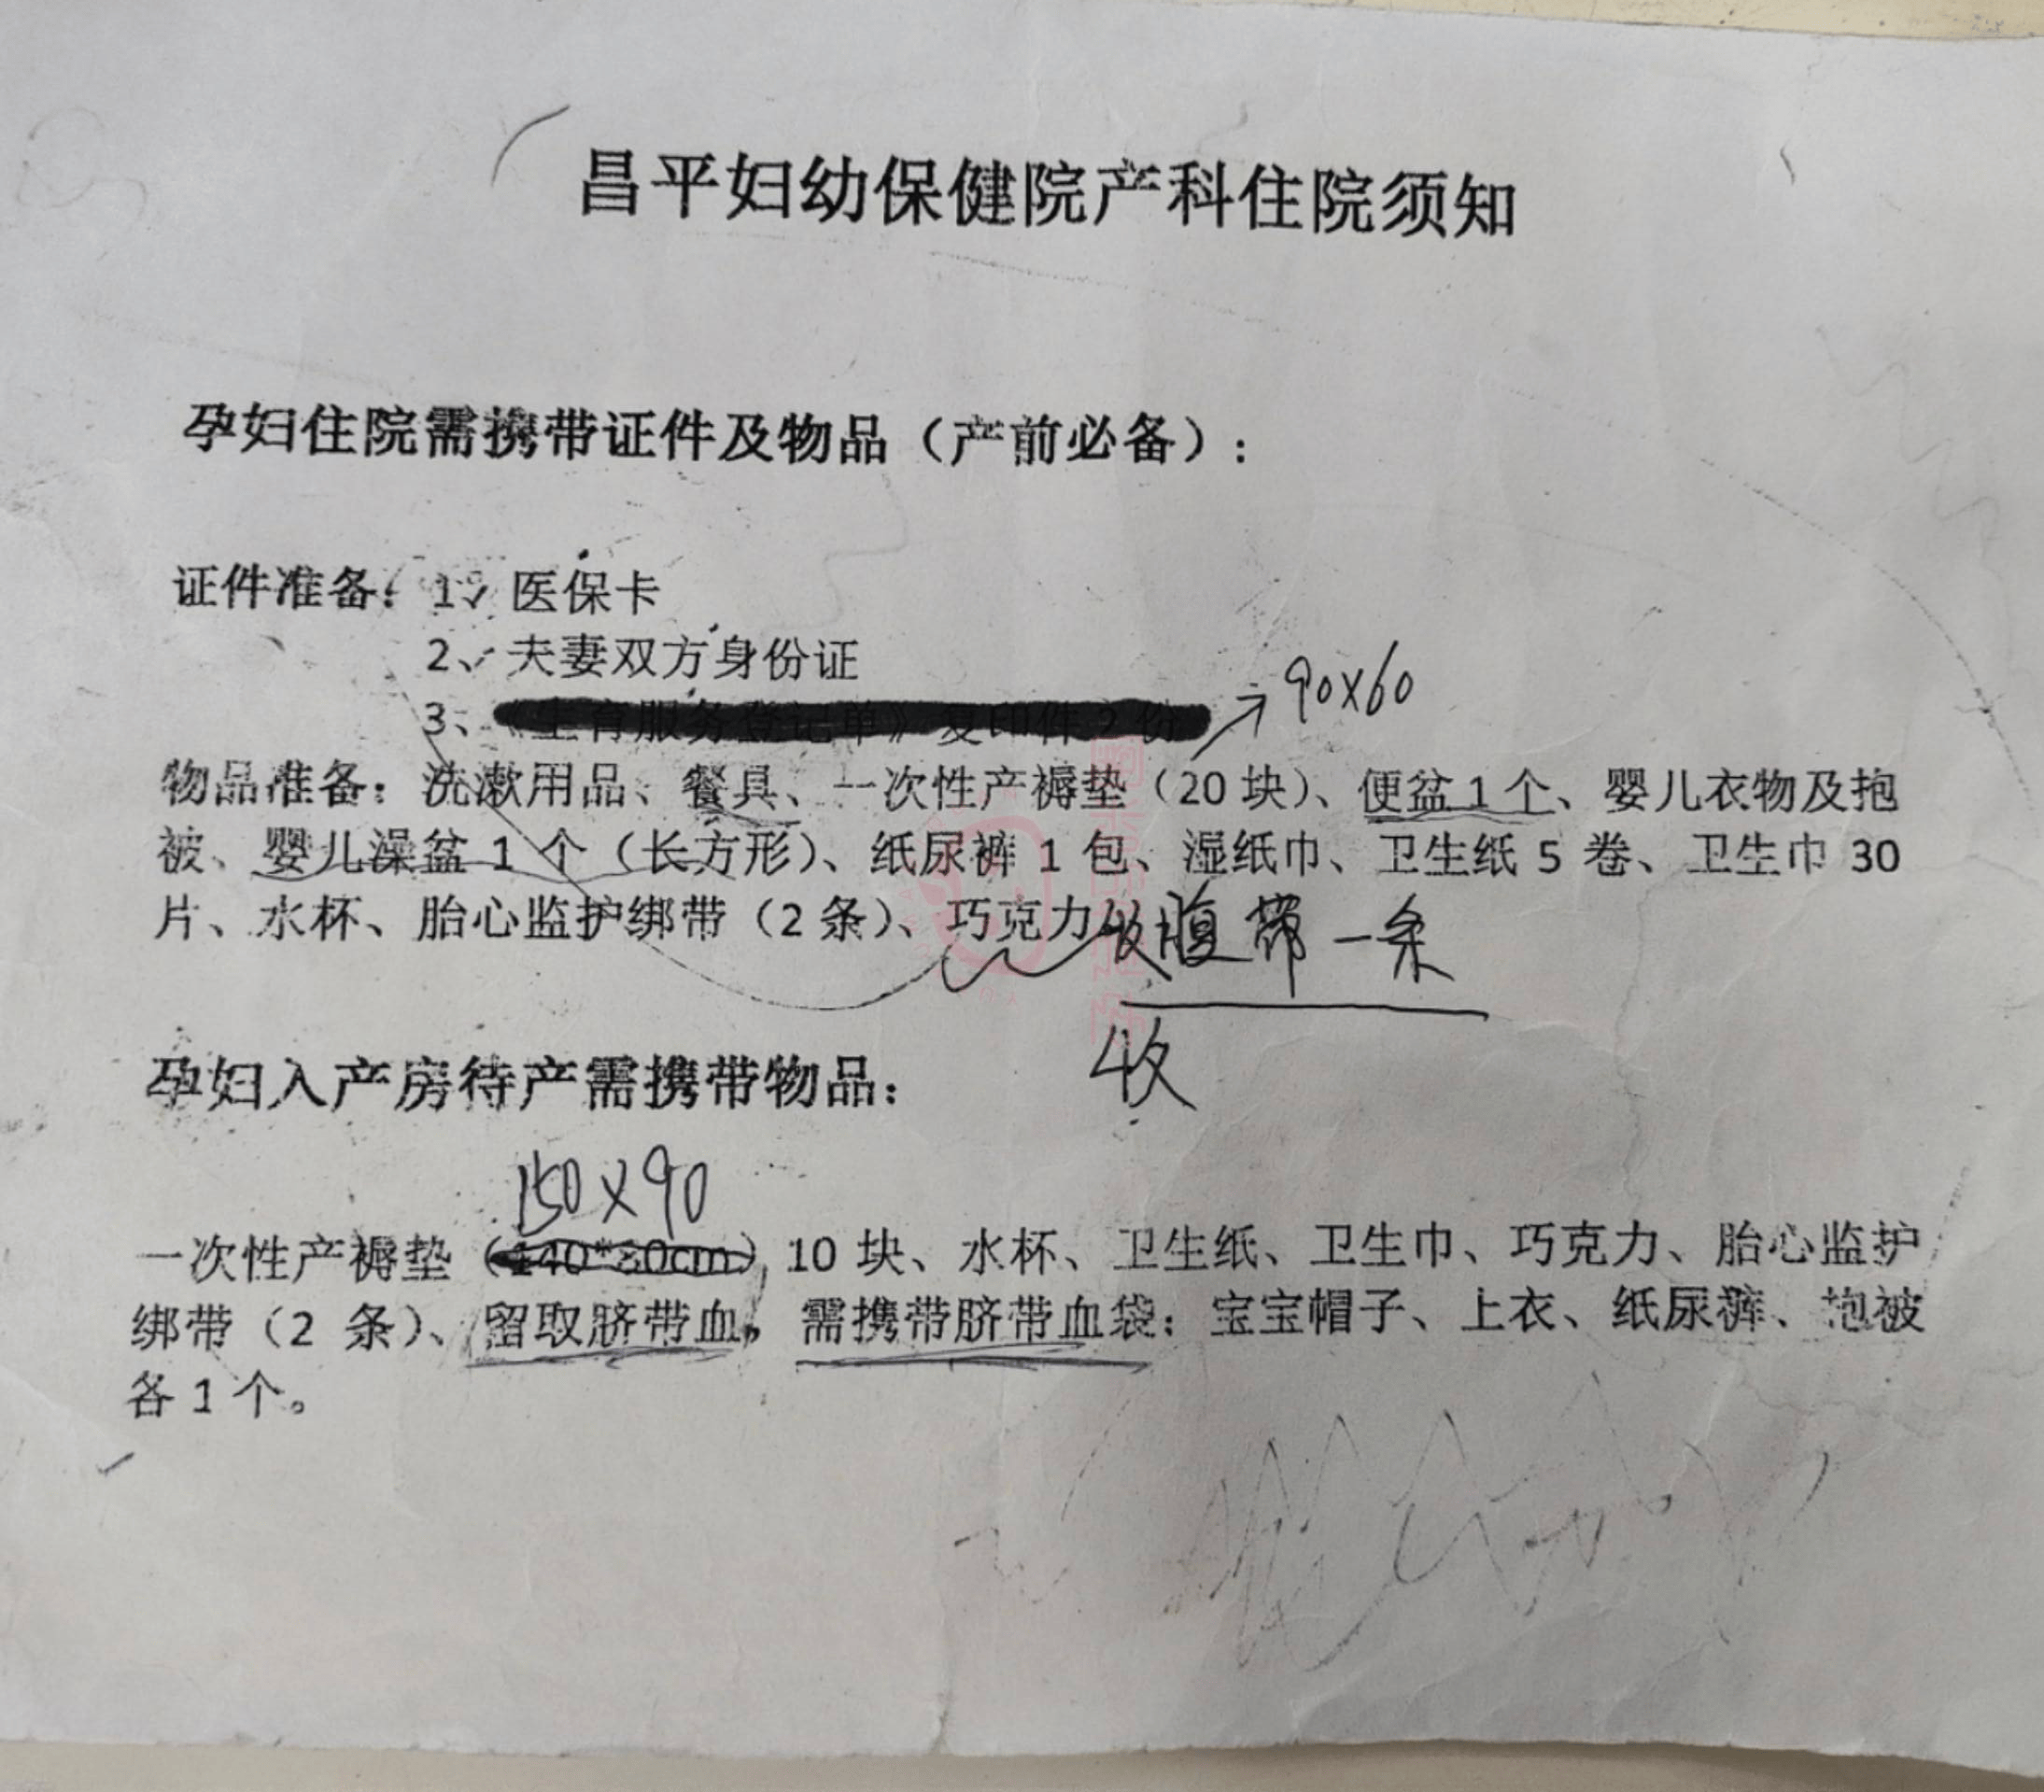 昌平妇幼保健院产科住院须知
孕妇住院需携带证件及物品（产前必备）:
证件准备: 1、医保卡
2、夫妻双方身份证
3、《生育服务登记单》复印件2份
90X60
物品准备: 洗漱用品、餐具、一次性产褥垫（20块）、便盆1个、婴儿衣物及抱
被、婴儿澡盆 1 个（长方形）、纸尿裤 1 包、湿纸巾、卫生纸 5 卷、卫生巾 30
片、水杯、胎心监护绑带（2条）、巧克力 收腹带一条
收
孕妇入产房待产需携带物品:
150X90
一次性产褥垫（140*80cm）10 块、水杯、卫生纸、卫生巾、巧克力、胎心监护
绑带（2 条）、留取脐带血，需携带脐带血袋；宝宝帽子、上衣、纸尿裤、抱被
各1个。